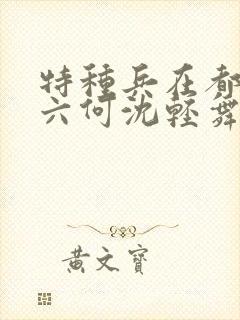 特種兵在都
六何沈輕舞
黃文寶